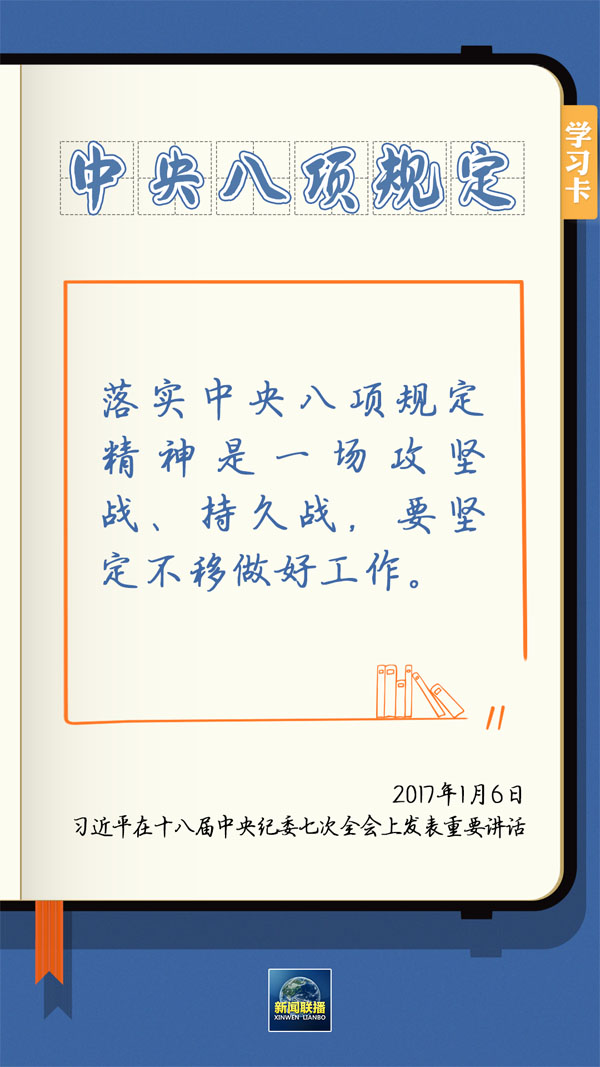 学习卡
中央八项规定
落实中央八项规定
精神是一场攻坚
战、持久战，要坚
定不移做好工作。
2017年1月6日
习近平在十八届中央纪委七次全会上发表重要讲话
新闻联播
XINWEN LIANBO